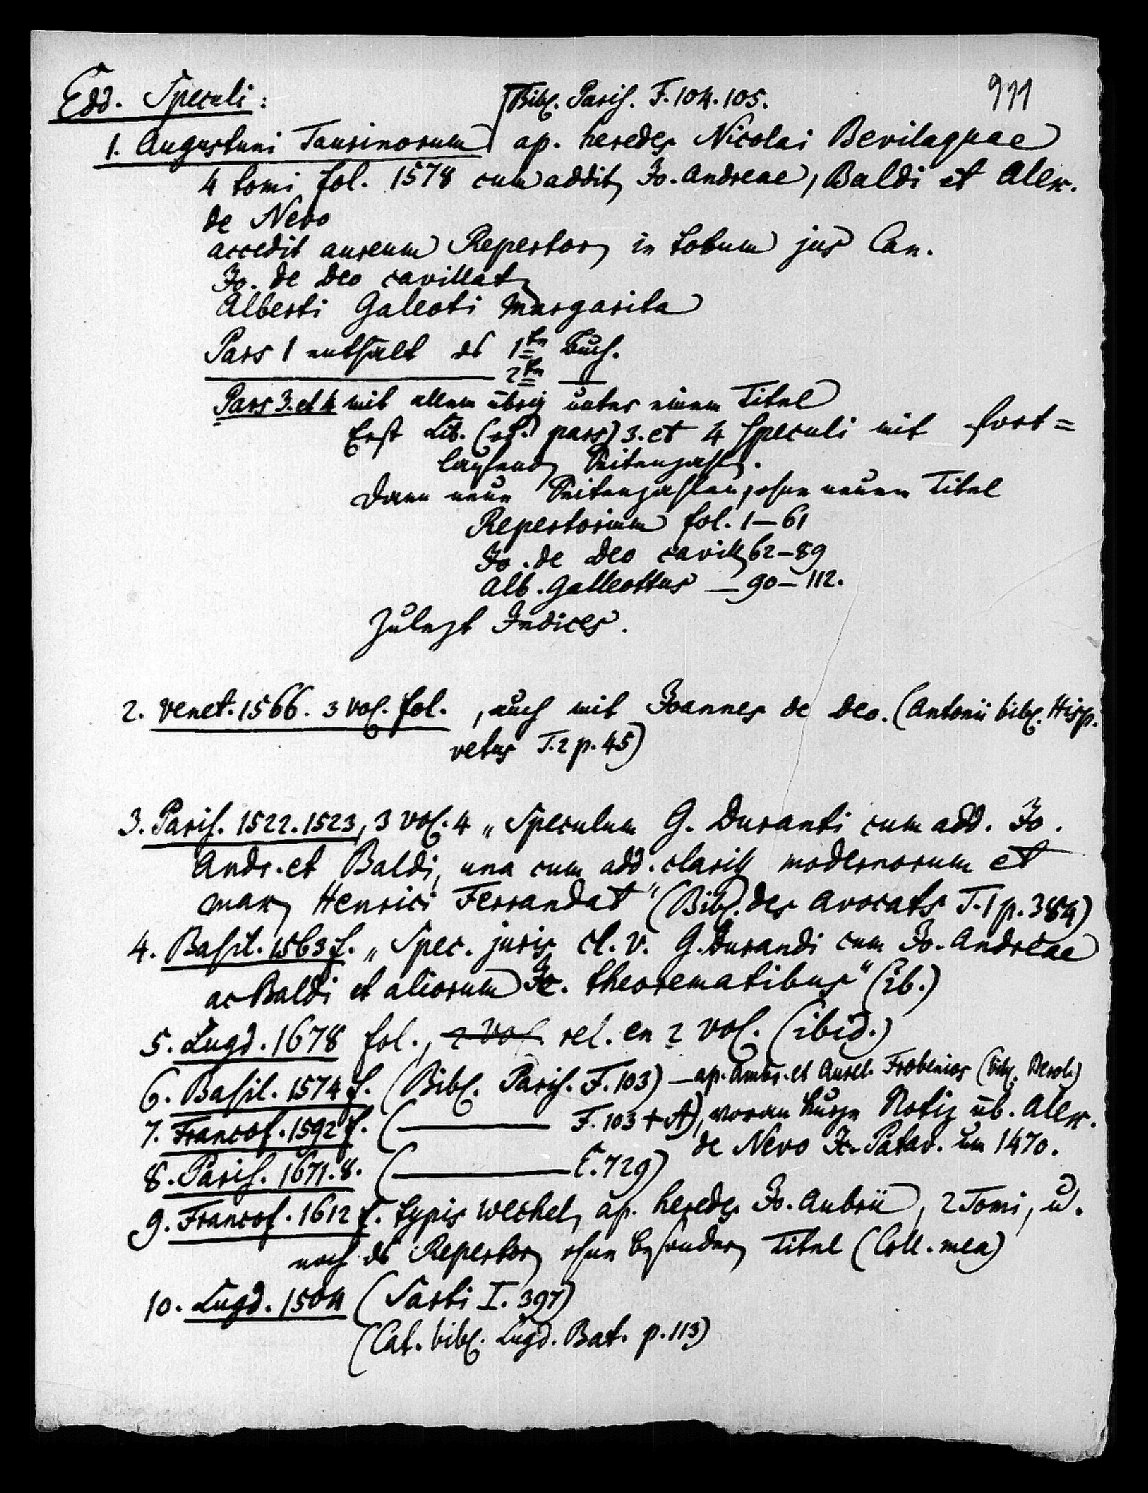 Edd. Speculi: Bibl. Paris. F. 104. 105. 911
1. Augustuni Taurinorum ap. heredes Nicolai Bevilaquae
4 tomi fol. 1578 cum addit. Jo. Andreae, Baldi et Alex.
de Nevo
accedit aureum Repertor. in totum jus Can.
Jo. de Deo cavillat.
Alberti Galeoti Margarita
Pars 1 enthält ds 1te Buch.
2te
Pars 3. et 4 mit allem übrig unter einem Titel
Erst Lib. (pars) 3. et 4 Speculi mit fort=
laufend. Seitenzahl.
Dann neue Seitenzahlen, ohne neuen Titel
Repertorium fol. 1–61
Jo. de Deo cavill. 62–89
Alb. Galleottus — 90–112.
Zuletzt Indices.
2. Venet. 1566. 3 vol. fol., auch mit Joannes de Deo. (Antonii bibl. Hisp.
vetus T. 2 p. 45)
3. Paris. 1522. 1523, 3 vol. 4 „Speculum G. Duranti cum add. Jo.
Andr. et Baldi, una cum add. clariss. modernorum et
max. Henrici Ferrandat" (Bibl. des Avocats T. 1 p. 384)
4. Basil. 1563 f. „Spec. juris cl. v. G. Durandi cum Jo. Andreae
ac Baldi et aliorum Jc. theorematibus" (ib.)
5. Lugd. 1678 fol., 2 vol. rel. en 2 vol. (ibid.)
6. Basil. 1574 f. (Bibl. Paris. F. 103) — ap. Ambr. et Aurel. Frobenios (bibl. Berol.)
7. Francof. 1592 f. (——— F. 103 + A), woran kurze Notiz üb. Alex.
de Nevo Jc. Patav. um 1470.
8. Paris. 1671. 8. (——— E. 729)
9. Francof. 1612 f. typis Wechel. ap. hered. Jo. Aubrii, 2 Tomi, u.
noch ds Repertor. ohne besondern Titel (Coll. mea)
10. Lugd. 1504 (Sarti I. 397)
(Cat. bibl. Lugd. Bat. p. 113)